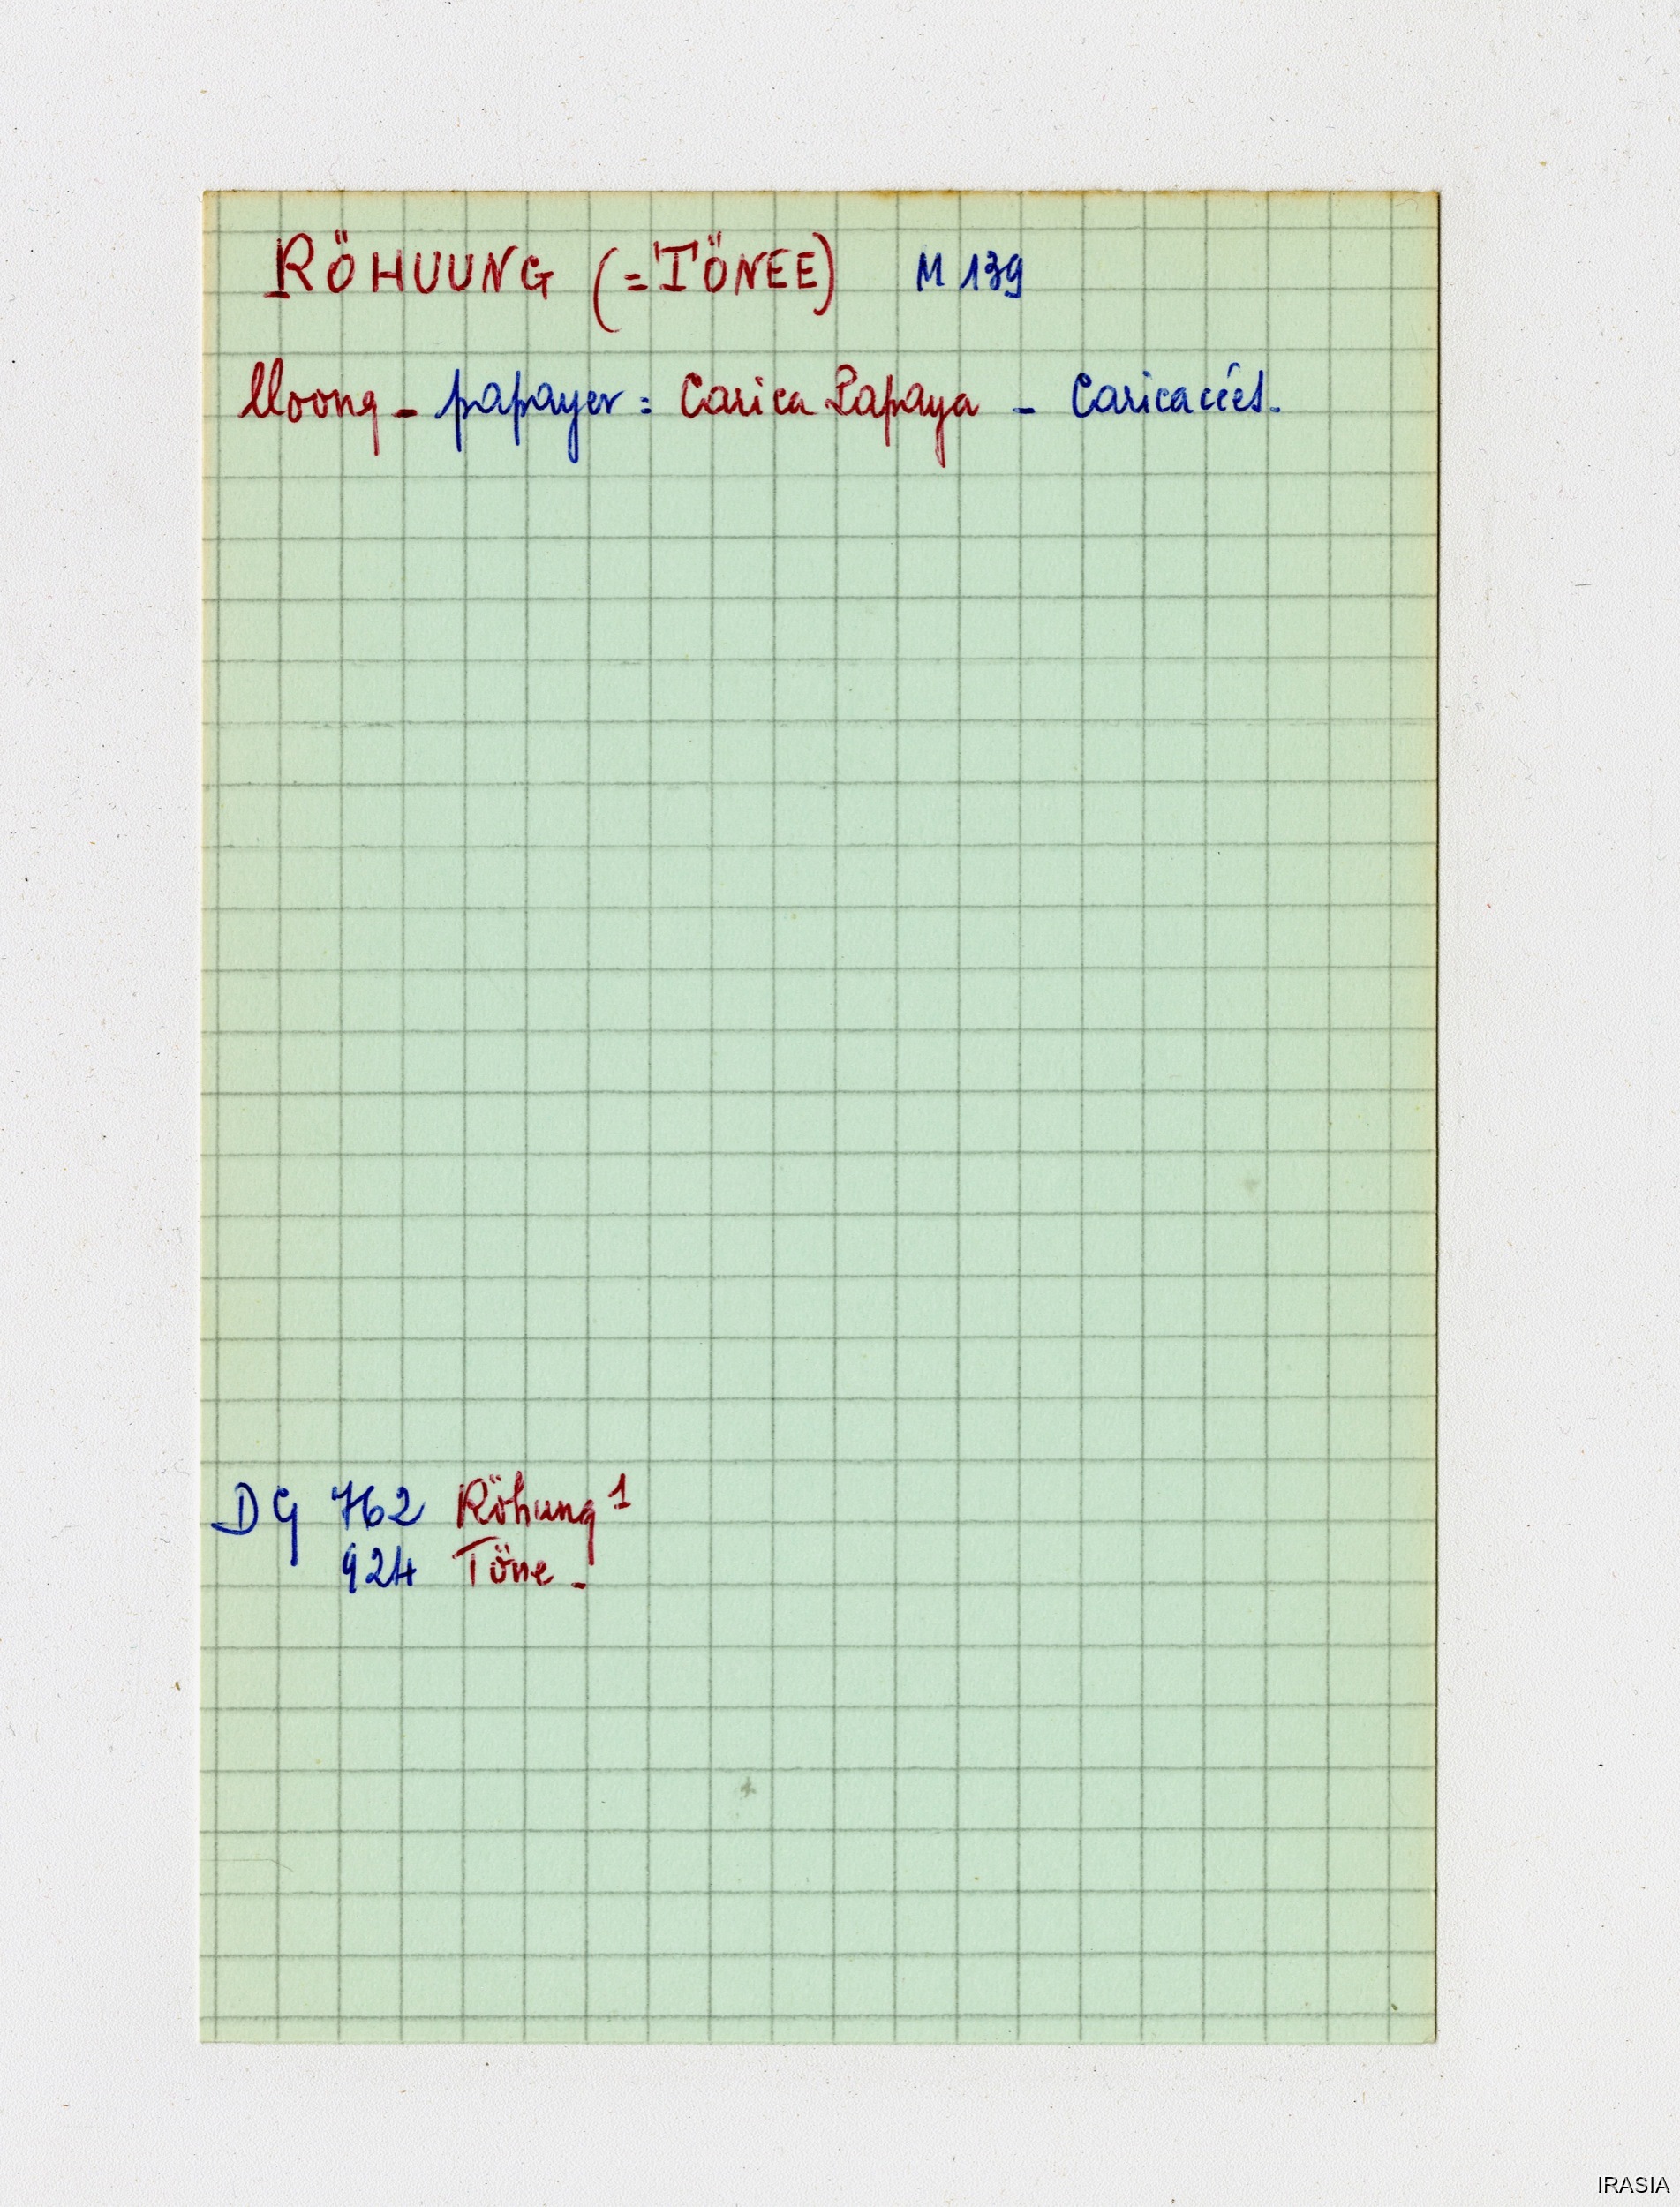 RÖHUUNG (= TÖNEE) M 139
Uoong - papayer = Carica Papaya - Caricacées.
DG 762 Röhung 1
924 Töne -
IRASIA